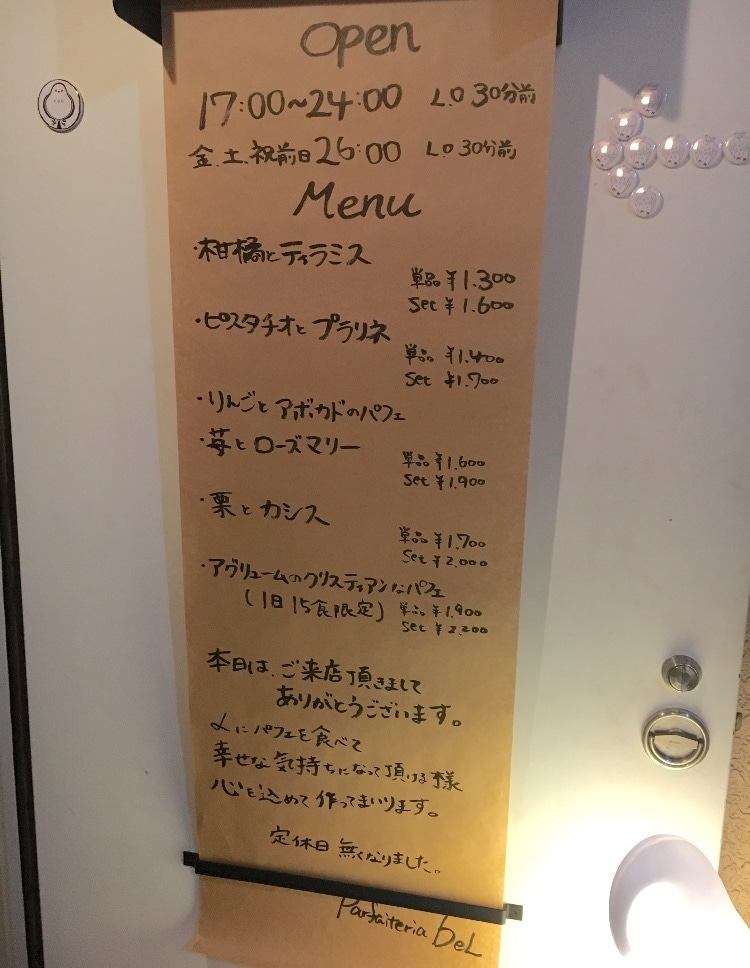 Open
17:00~24:00 L.O 30分前
金.土.祝前日26:00 L.O 30分前
Menu
・柑橘とティラミス
単品 ¥1.300
Set ¥1.600
・ピスタチオと プラリネ
単品 ¥1.400
Set ¥1.700
・りんごと アボカドのパフェ
・苺と ローズマリー
単品 ¥1.600
Set ¥1.900
・栗と カシス
単品 ¥1.700
Set ¥2.000
・アグリュームのクリスティアンなパフェ
(1日15食限定) 単品 ¥1.900
Set ¥2.200
本日は、ご来店頂きまして
ありがとうございます。
人にパフェを食べて
幸せな気持ちになって頂ける様
心を込めて 作ってまいります。
定休日 無くなりました。
Parfaiteria beL